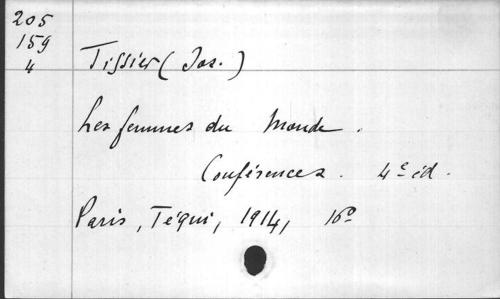 205
159
4
Tissier (Jos.)
Les femmes du Monde.
Conférences. 4e éd.
Paris, Téqui, 1914, 16o